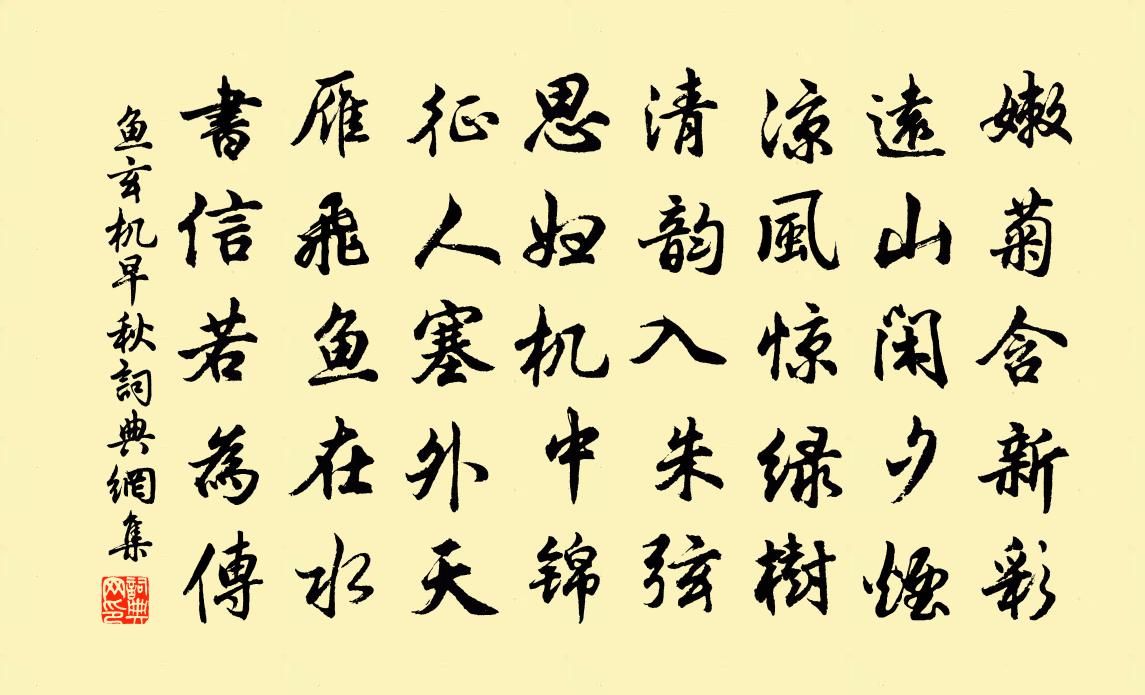 嫩菊含新彩
遠山闲夕煙
涼風惊绿樹
清韵入朱弦
思妇机中锦
征人塞外天
雁飛鱼在水
書信若為傳
鱼玄机早秋詞典網集
詞典网印